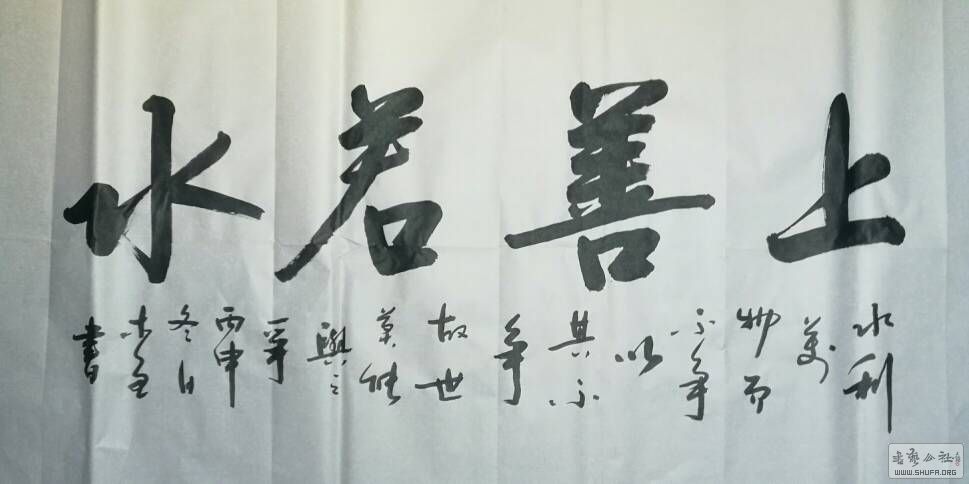 上善若水
水利
萬
物而
不争
以
其不
争
故世
莫能
與之
爭
丙申
冬日
書
書藝公社
WWW.SHUFA.ORG